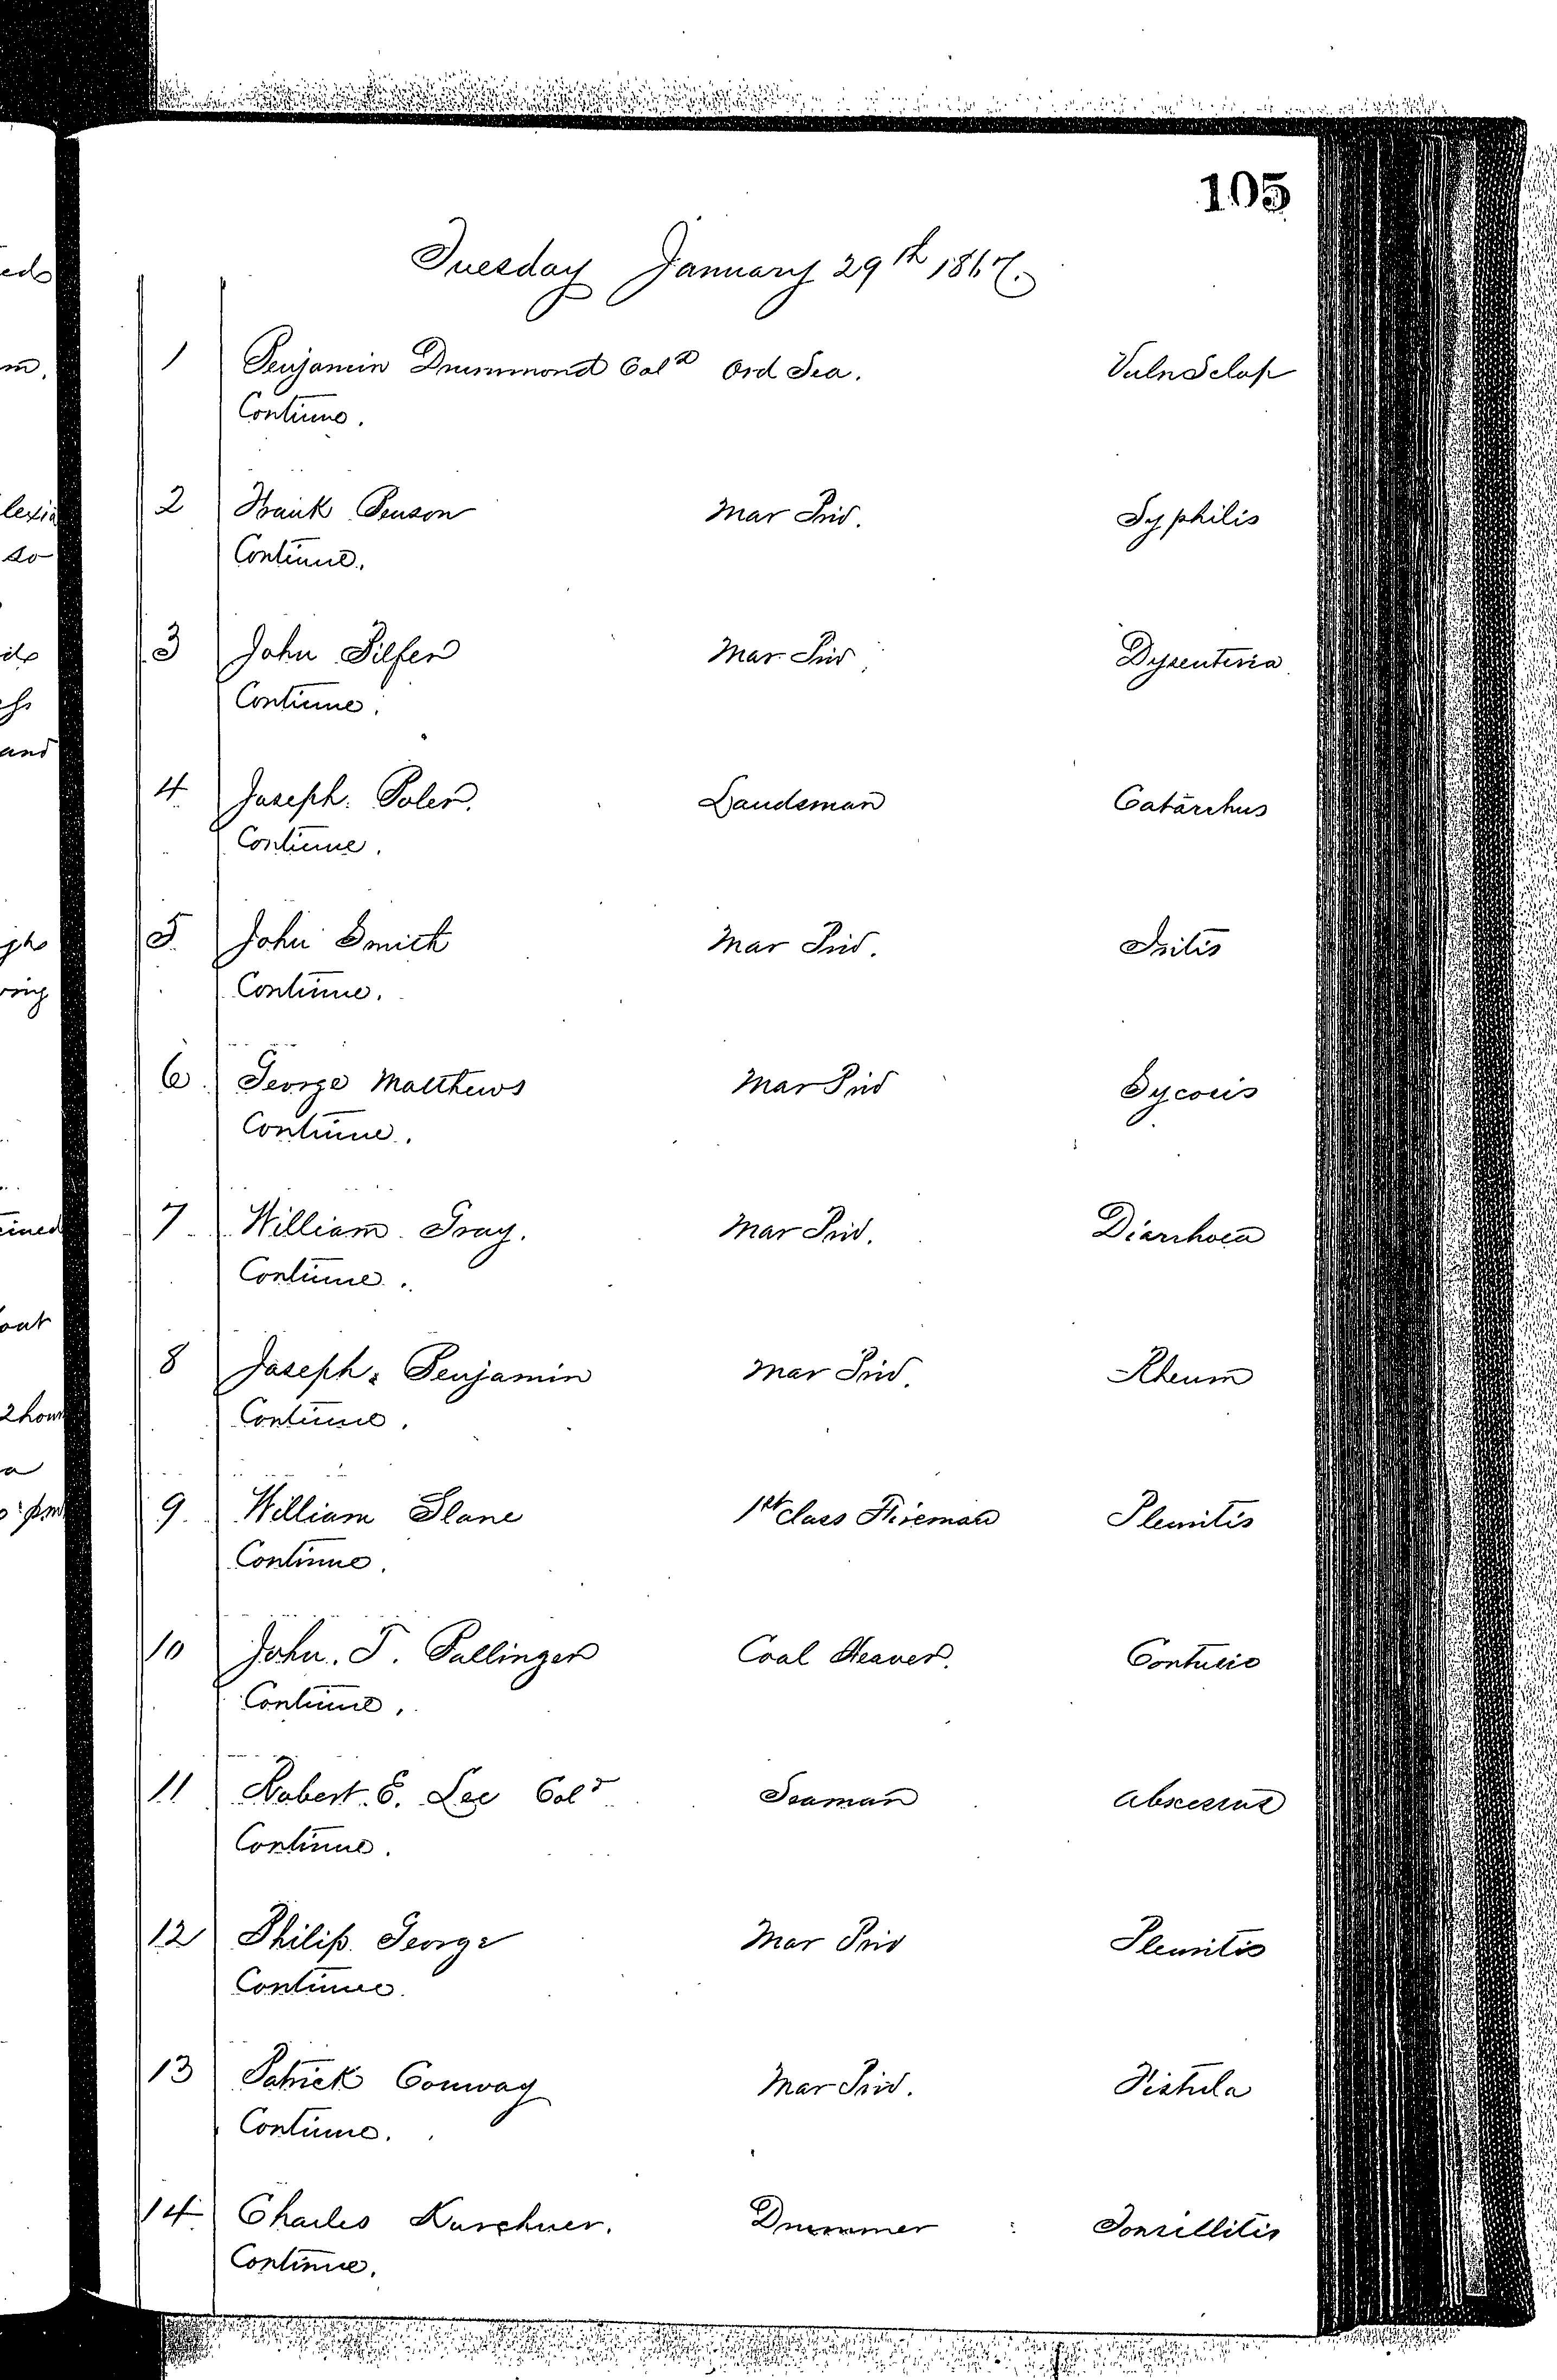 105
Tuesday January 29th 1867.
1 Benjamin Drummond Cold Ord Sea. Vuln Sclop
Continue.
2 Frank Benson Mar Priv. Syphilis
Continue.
3 John Pilfer Mar Priv. Dysenteria
Continue.
4 Joseph Boler. Landsman Catarrhus
Continue.
5 John Smith Mar Priv. Iritis
Continue.
6 George Matthews Mar Priv Sycosis
Continue.
7 William Gray. Mar Priv. Diarrhoea
Continue.
8 Joseph Benjamin Mar Priv. Rheum
Continue.
9 William Slane 1st Class Fireman Pleuritis
Continue.
10 John. T. Ballinger Coal Heaver. Contusio
Continue.
11 Robert. E. Lee Cold Seaman Abscessus
Continue.
12 Philip George Mar Priv Pleuritis
Continue.
13 Patrick Conway Mar Priv. Fistula
Continue.
14 Charles Kurchner. Drummer Tonsillitis
Continue.